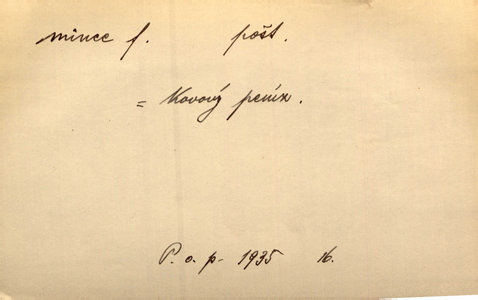 mince f. pošt.
= Kovový peníz.
P. o. p. 1935 16.